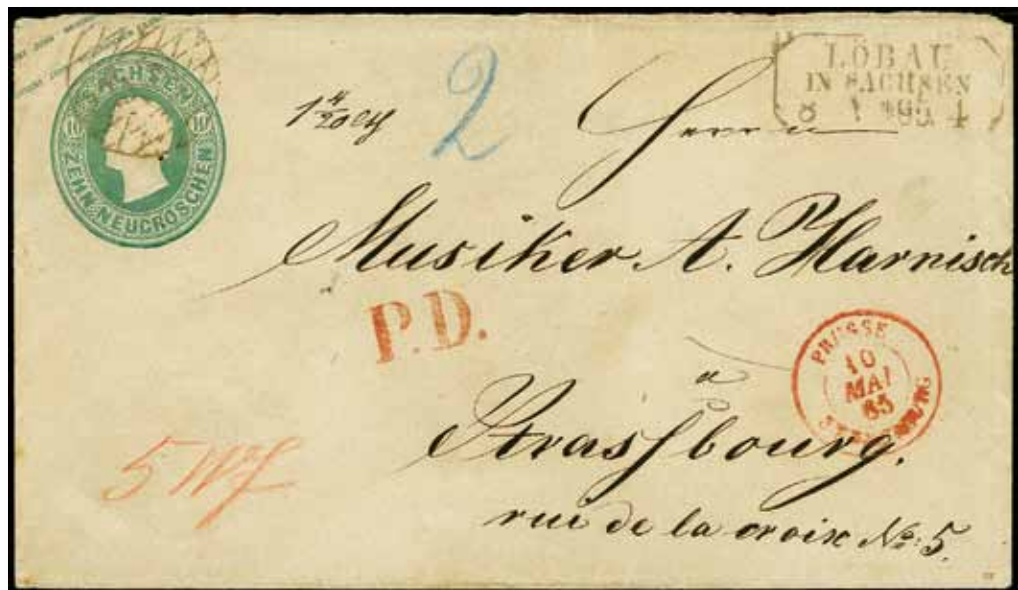 SACHSEN
10 10
ZEHN NEUGROSCHEN
LÖBAU
IN SACHSEN
8 V 65 4
2
Herrn
Musiker A. Harnisch
P.D.
PRUSSE
10
MAI
65
STRASBOURG
à
Strassbourg.
5 Wf
rue de la croix No: 5.